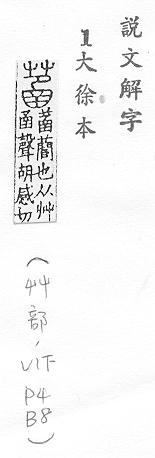 說文解字
1大徐本
菡 菡萏也从艸
函聲胡感切
(艸部,V1下
P4
B8)